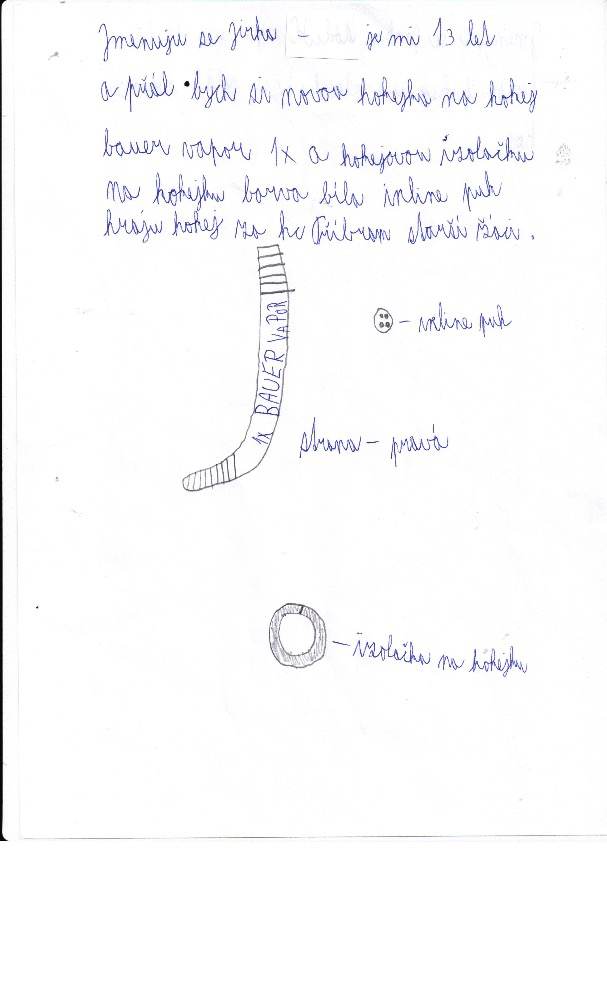 Jmenuju se Jirka - je mi 13 let
a přál bych si novou hokejku na hokej
bauer vapor 1x a hokejovou izolačku
na hokejku barva bíla inline puk
hraju hokej za hc Příbram starší žáci.
1x BAUER VAPOR
- inline puk
strana - pravá
- izolačka na hokejku